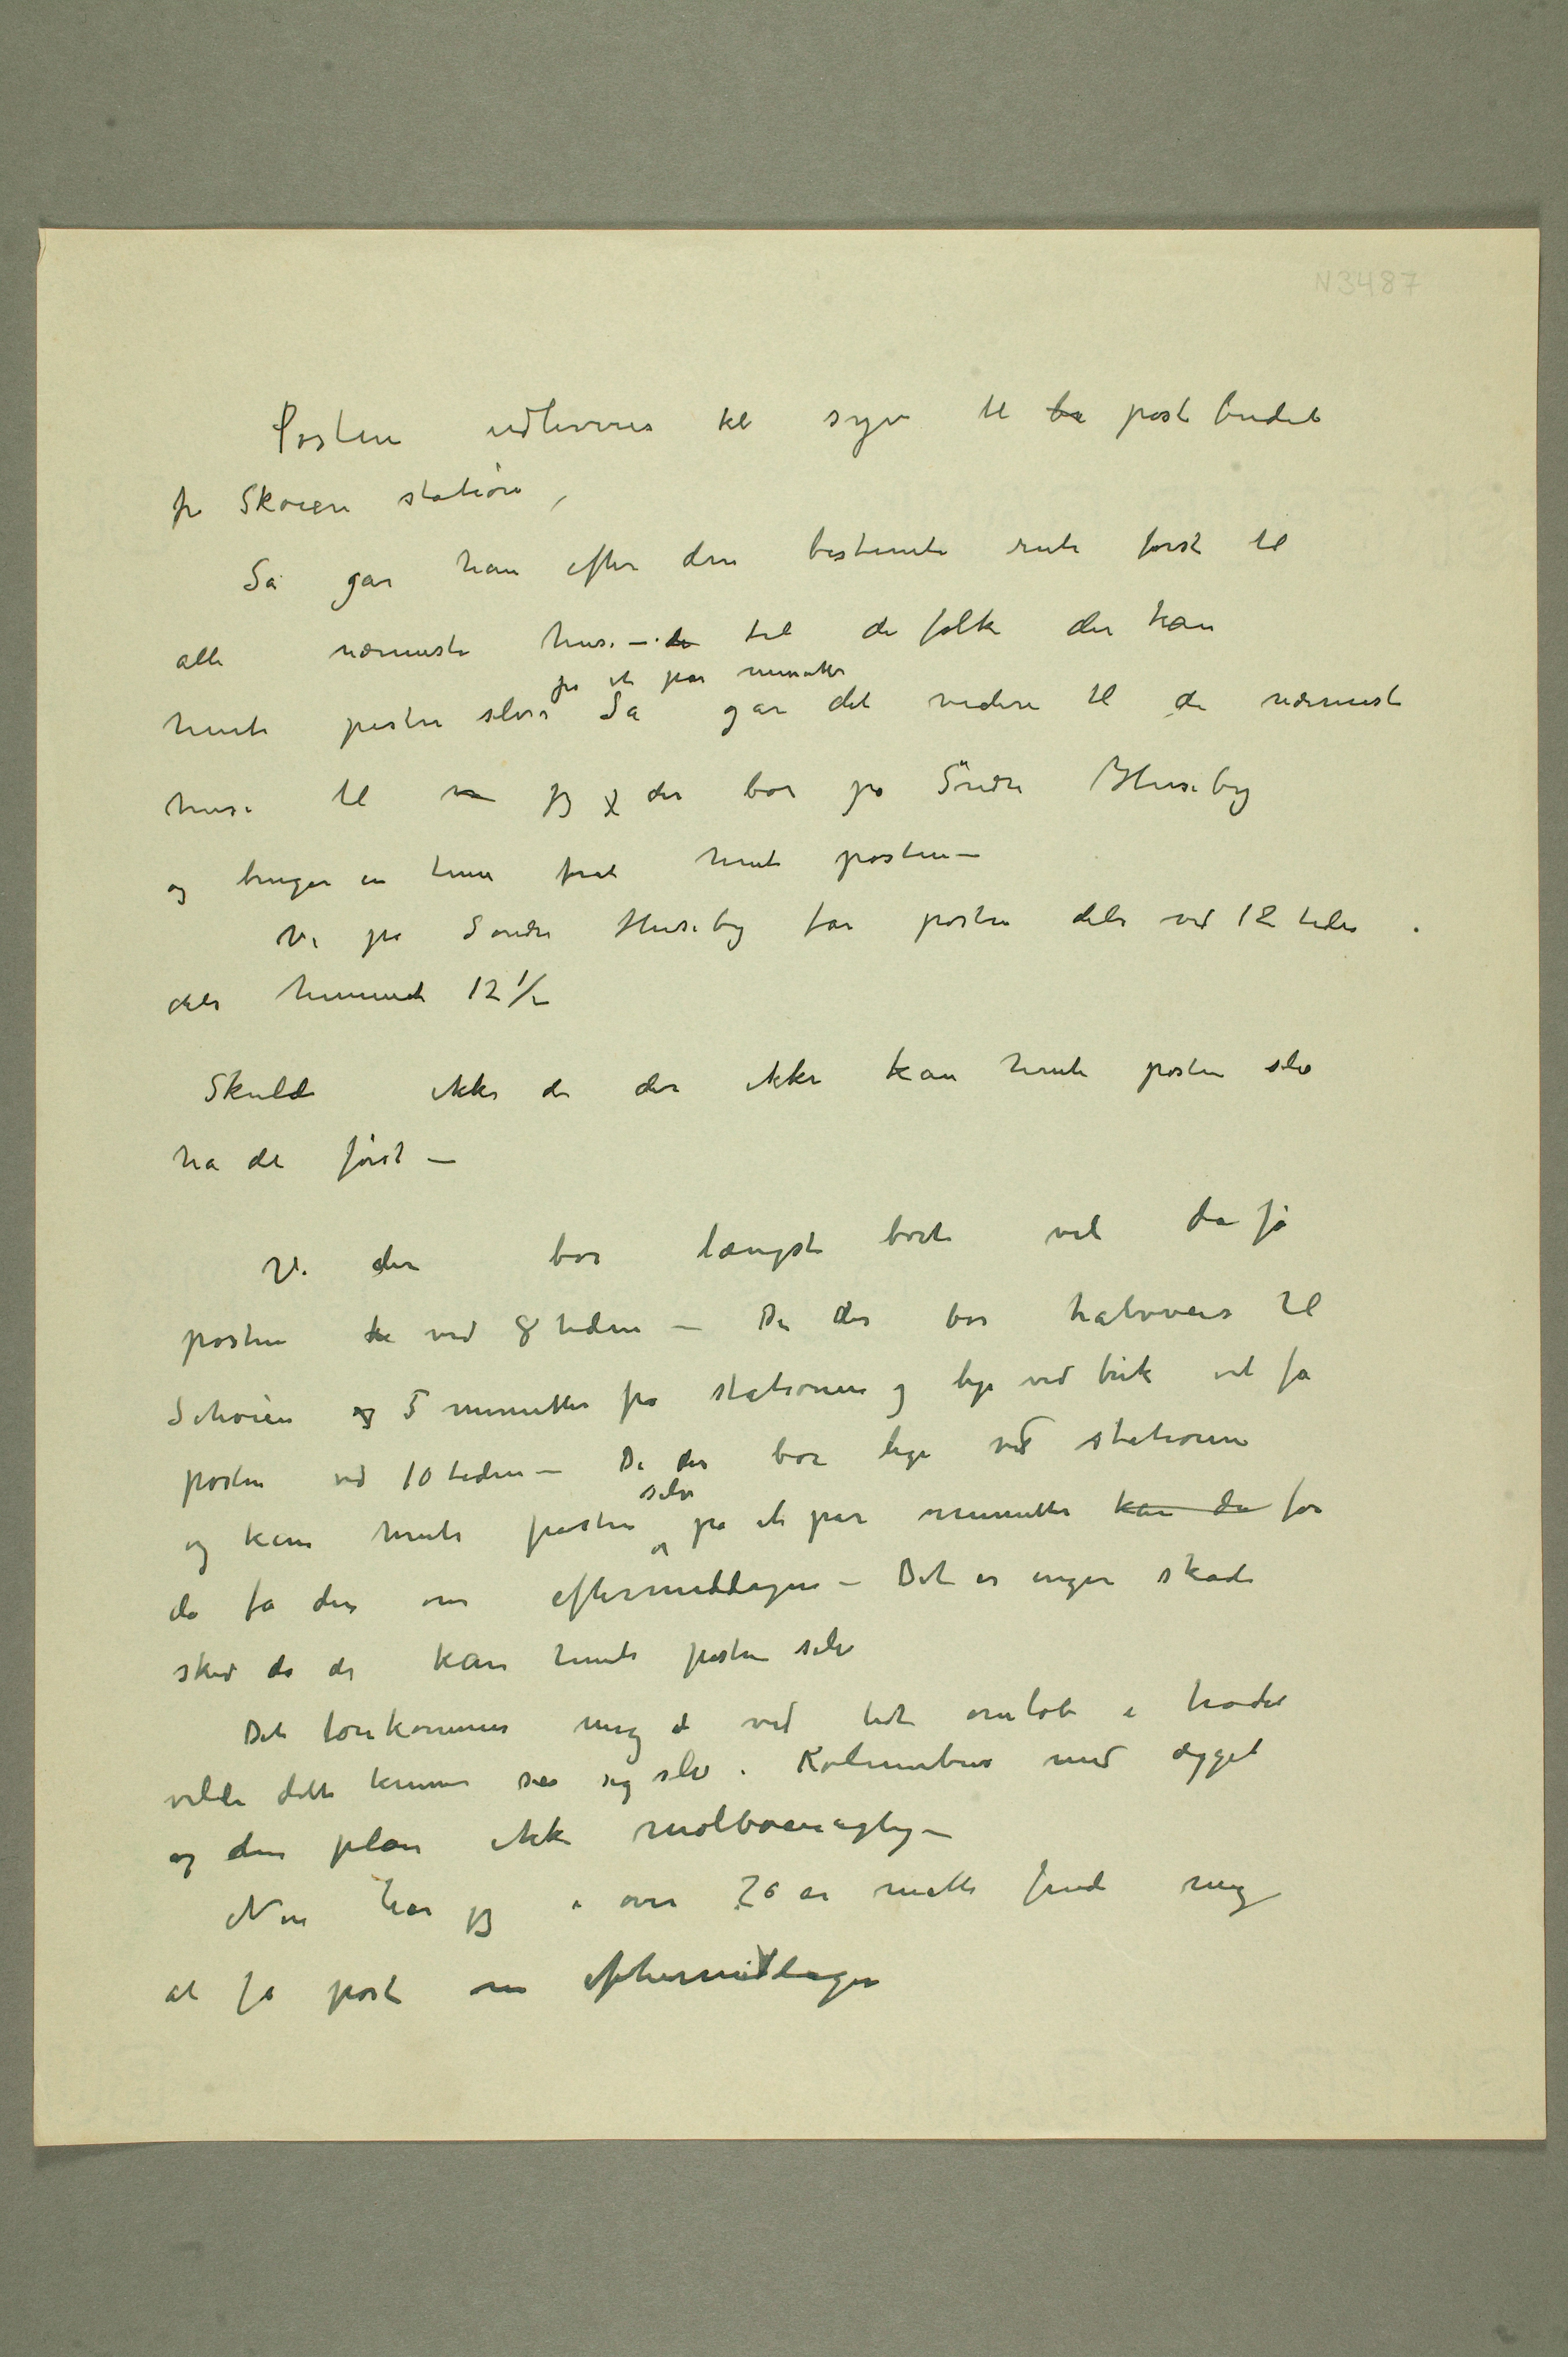 N3487
Posten udleveres kl syv til be postbudet
fra Skøien station,
Så går han efter den bestemte rute først til
alle nærmeste huse – de til de folk der kan
på et par minutter
hente posten selv. Så går det videre til de nærmeste
huse til jeg der bor på Søndre Huseby
og bruger en time for at hente posten –
Vi på Søndre Huseby får posten dels ved 12 tiden
dels henimod 12 1/2
Skulde ikke de der ikke kan hente posten selv
ha det først –
Vi der bor længst borte vil da få
posten ved 8 tiden – De der bor halvveis til
Schøien og 5 minutter fra stationen og lige ved trik vil få
posten ved 10 tiden – De der bor lige ved stationen
selv
og kan hente posten på et par minutter kan da får
da få den om eftermiddagen – Det er ingen skade
sked da de kan hente posten selv
Det forekommer mig at ved lidt omløb i hodet
vilde dette kunne sies sig selv. Kolumbus med ægget
og den plan ikke molboeragtig –
Nu har jeg i over 20 år måtte finde mig
at få post om eftermiddagen